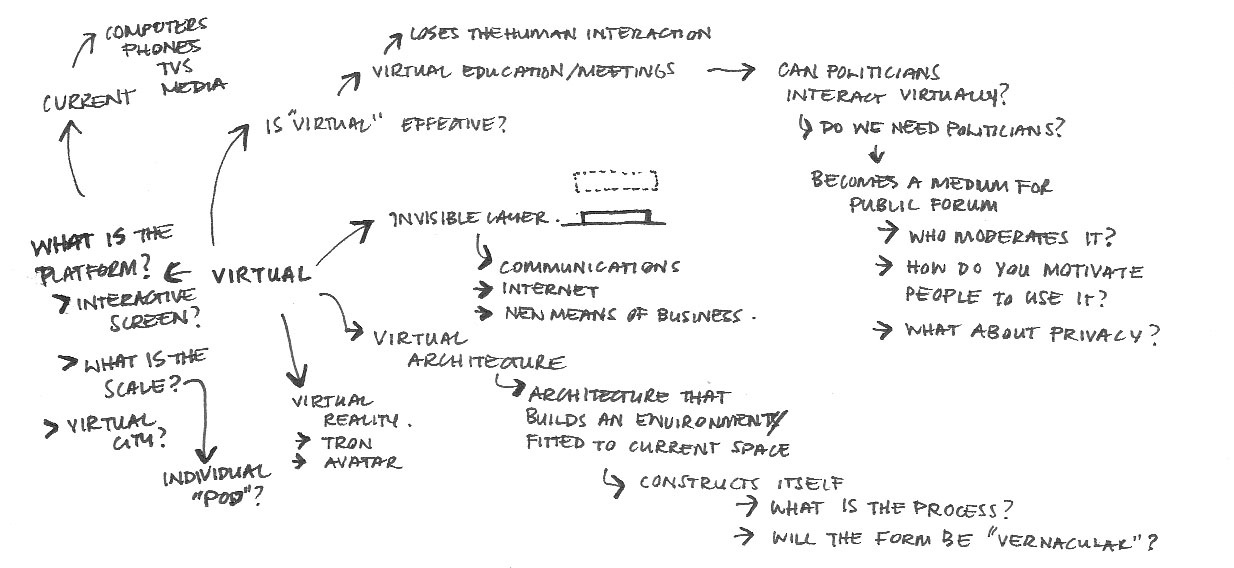 COMPUTERS
PHONES
TVS
MEDIA
CURRENT
LOSES THE HUMAN INTERACTION
VIRTUAL EDUCATION/MEETINGS
IS "VIRTUAL" EFFECTIVE?
CAN POLITICIANS
INTERACT VIRTUALLY?
DO WE NEED POLITICIANS?
BECOMES A MEDIUM FOR
PUBLIC FORUM
WHO MODERATES IT?
HOW DO YOU MOTIVATE
PEOPLE TO USE IT?
WHAT ABOUT PRIVACY?
INVISIBLE LAYER.
COMMUNICATIONS
INTERNET
NEW MEANS OF BUSINESS.
WHAT IS THE
PLATFORM?
INTERACTIVE
SCREEN?
WHAT IS THE
SCALE?
VIRTUAL
CITY?
INDIVIDUAL
"POD"?
VIRTUAL
VIRTUAL
REALITY.
TRON
AVATAR
VIRTUAL
ARCHITECTURE
ARCHITECTURE THAT
BUILDS AN ENVIRONMENT/
FITTED TO CURRENT SPACE
CONSTRUCTS ITSELF
WHAT IS THE PROCESS?
WILL THE FORM BE "VERNACULAR"?